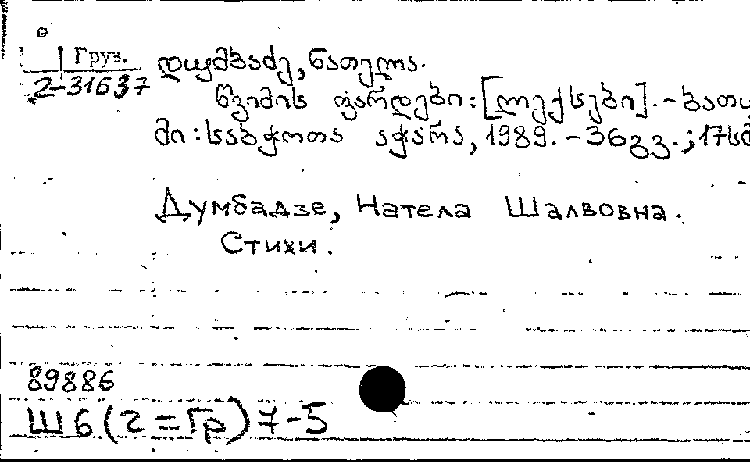 Груз.
2-31637
დუმბაძე, ნათელა.
წვიმის ფარდები : [ლექსები]. - ბათუ
მი : საბჭოთა აჭარა, 1989. - 36გვ. ; 17სმ
Думбадзе, Натела Шалвовна.
Стихи.
89886
Ш6(2=Гр)7-5